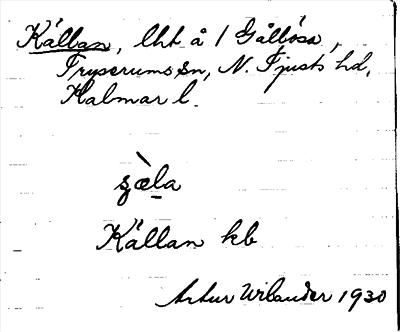 Källan, lht å / Gållösa,
Tryserums sn, N. Tjusts hd,
Kalmar l.
Källan kb
Artur Wilander 1930